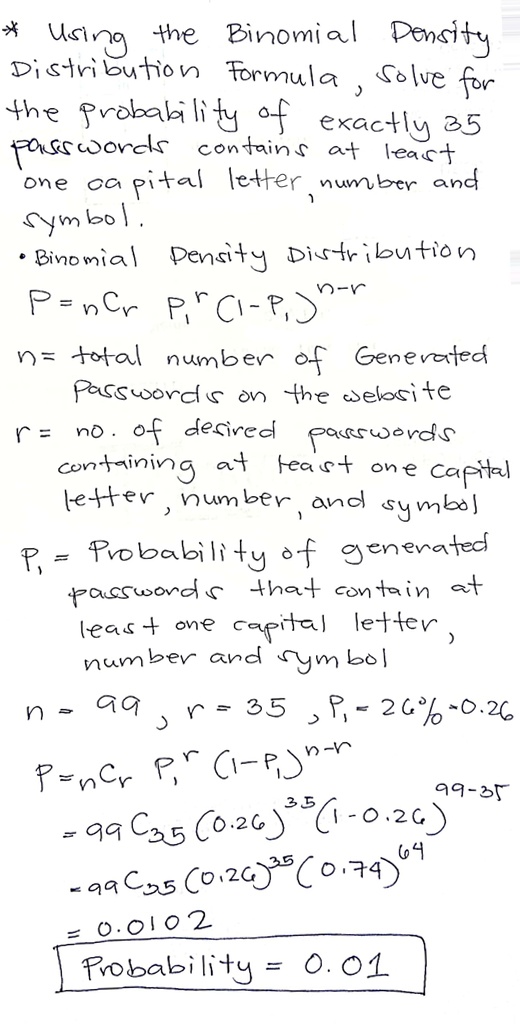 * Using the Binomial Density
Distribution Formula, solve for
the probability of exactly 35
passwords contains at least
one capital letter, number and
symbol.
• Binomial Density Distribution
P = nCr P₁ʳ (1-P₁)ⁿ⁻ʳ
n = total number of Generated
Passwords on the website
r = no. of desired passwords
containing at least one capital
letter, number, and symbol
P₁ = Probability of generated
passwords that contain at
least one capital letter,
number and symbol
n = 99, r = 35, P₁ = 26% = 0.26
P = nCr P₁ʳ (1-P₁)ⁿ⁻ʳ
= 99C35 (0.26)³⁵ (1-0.26)⁹⁹⁻³⁵
= 99C35 (0.26)³⁵ (0.74)⁶⁴
= 0.0102
Probability = 0.01